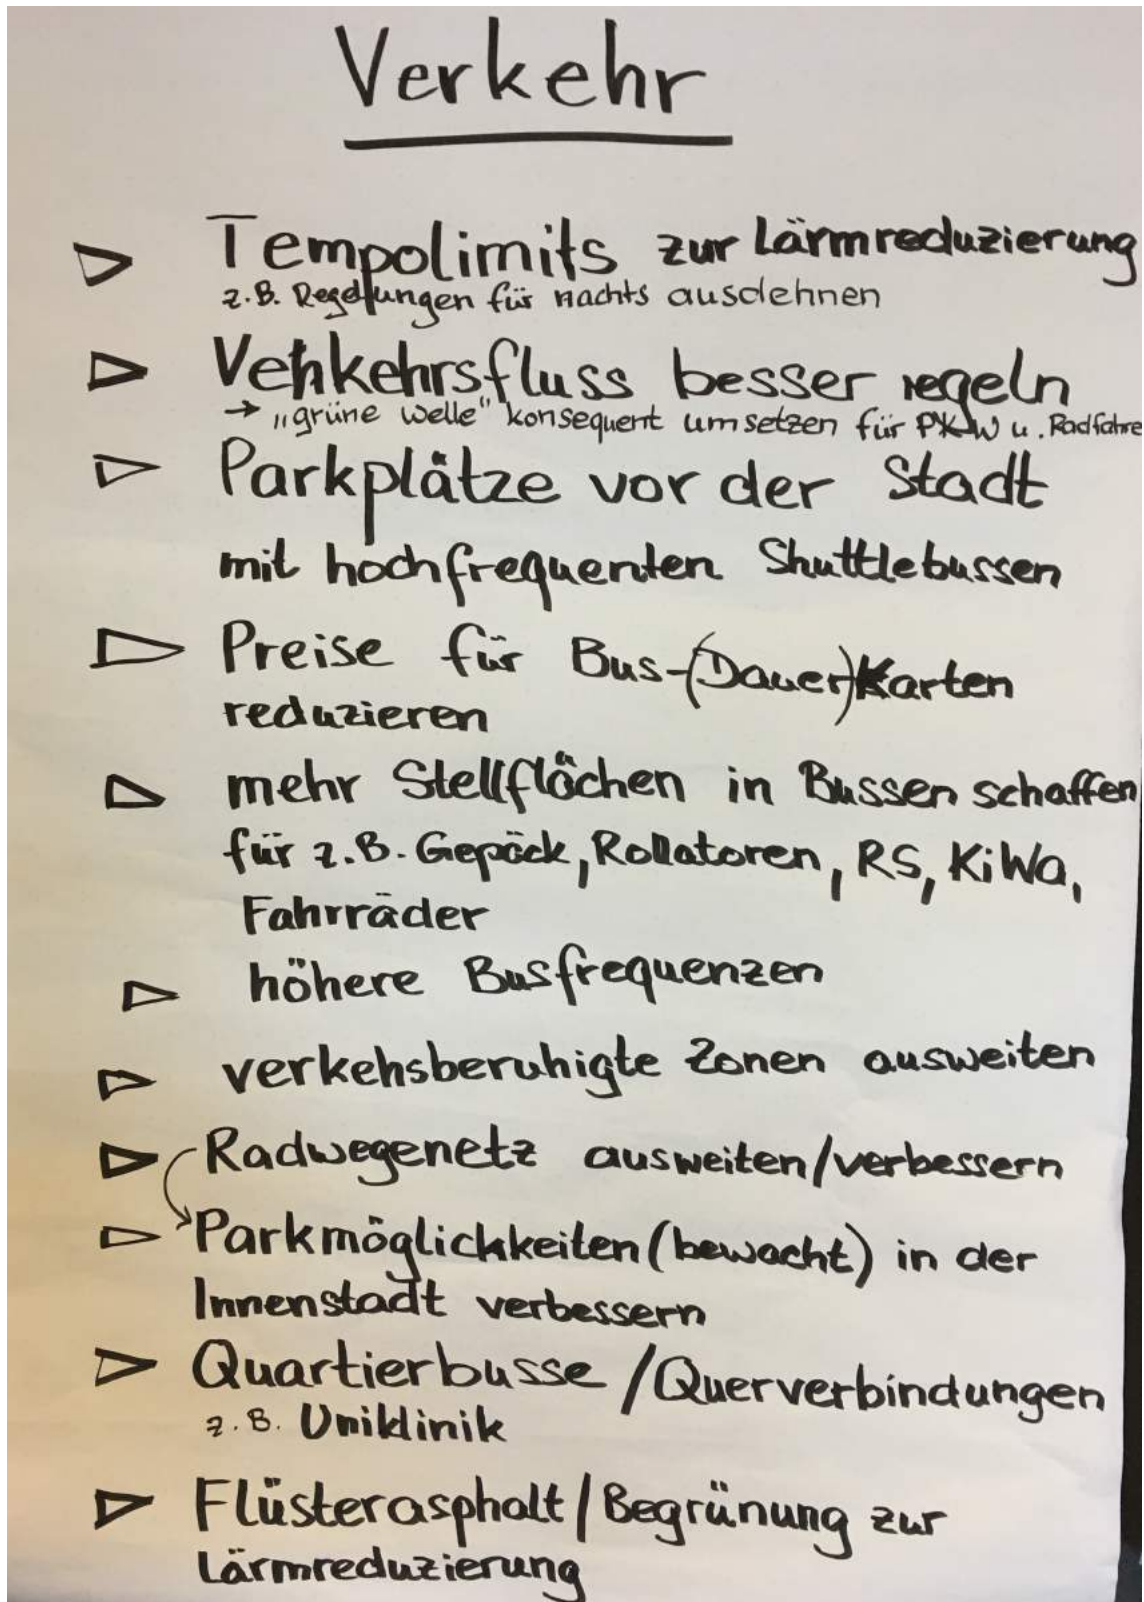 Verkehr
Tempolimits zur Lärmreduzierung
z.B. Regelungen für nachts ausdehnen
Verkehrsfluss besser regeln
→ „grüne Welle" konsequent umsetzen für PKW u. Radfahre
Parkplätze vor der Stadt
mit hochfrequenten Shuttlebussen
Preise für Bus-(Dauer)Karten
reduzieren
mehr Stellflächen in Bussen schaffen
für z.B. Gepäck, Rollatoren, RS, KiWa,
Fahrräder
höhere Busfrequenzen
verkehsberuhigte Zonen ausweiten
Radwegenetz ausweiten/verbessern
Parkmöglichkeiten (bewacht) in der
Innenstadt verbessern
Quartierbusse / Querverbindungen
z.B. Uniklinik
Flüsterasphalt / Begrünung zur
Lärmreduzierung